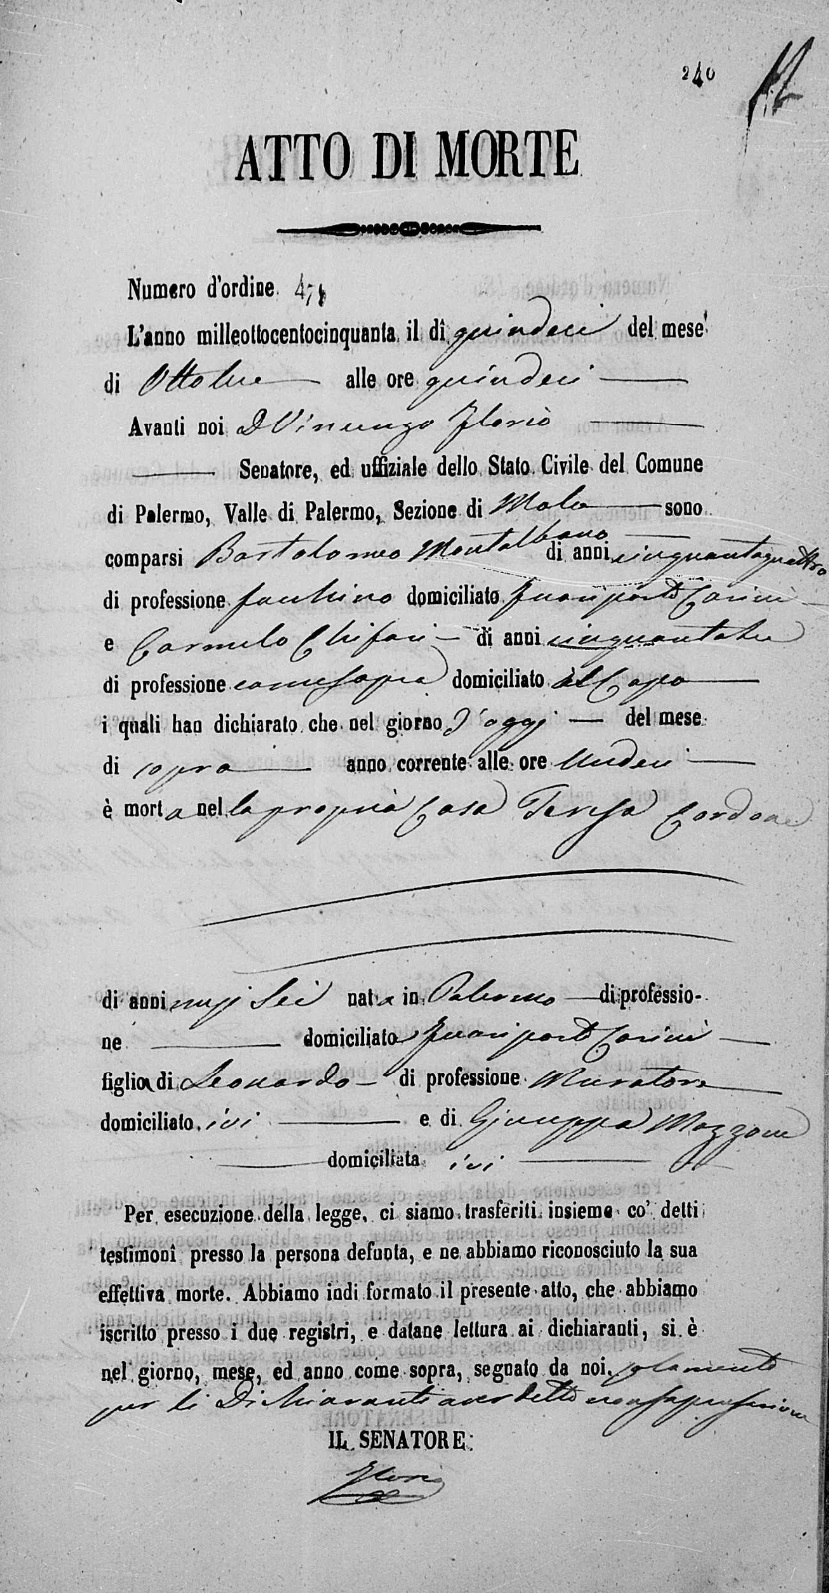 240
12
ATTO DI MORTE
Numero d'ordine 471
L'anno milleottocentocinquanta il dì quindeci del mese
di Ottobre alle ore quindeci
Avanti noi D Vincenzo Florio
Senatore, ed uffiziale dello Stato Civile del Comune
di Palermo, Valle di Palermo, Sezione di Molo sono
comparsi Bartolomeo Montalbano di anni cinquantaquattro
di professione facchino domiciliato fuori porta Carini
e Carmelo Chifari di anni cinquantatre
di professione comesopra domiciliato al Capo
i quali han dichiarato che nel giorno d'oggi del mese
di sopra anno corrente alle ore undeci
è morta nella propria Casa Teresa Cardone
di anni mesi sei nata in Palermo di professio-
ne domiciliata fuori porta Carini
figlia di Leonardo di professione Muratore
domiciliato ivi e di Giuseppa Mazzone
domiciliata ivi
Per esecuzione della legge, ci siamo trasferiti insieme co' detti
testimonî presso la persona defunta, e ne abbiamo riconosciuto la sua
effettiva morte. Abbiamo indi formato il presente atto, che abbiamo
iscritto presso i due registri, e datane lettura ai dichiaranti, si è
nel giorno, mese, ed anno come sopra, segnato da noi solamente
per li Dichiaranti aver detto non saper scrivere
IL SENATORE
Florio